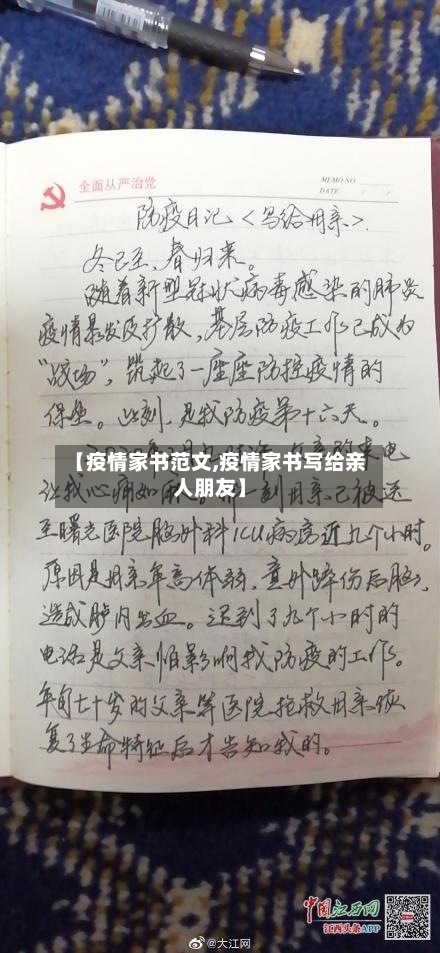 全面从严治党
MEMO NO.
DATE / /
防疫日记<写给母亲>.
冬已至、春归来。
随着新型冠状病毒感染的肺炎
疫情暴发及扩散，基层防疫工作已成为
“战场”，筑起了一座座防控疫情的
保垒。此刻，是我防疫第十六天。
的来电
【疫情家书范文,疫情家书写给亲
人朋友】
让我心痛如 一刻母亲已被送
至曙光医院脑外科ICU病房近九个小时。
原因是母亲年高体弱，意外蹿伤后脑，
造成胪内出血。迟到了九个小时的
电话是父亲怕影响我防疫的工作。
年自七十岁的父亲等医院抢救母亲恢
复了生命特征后才告知我的。
中国江西网
江西头条APP
@大江网